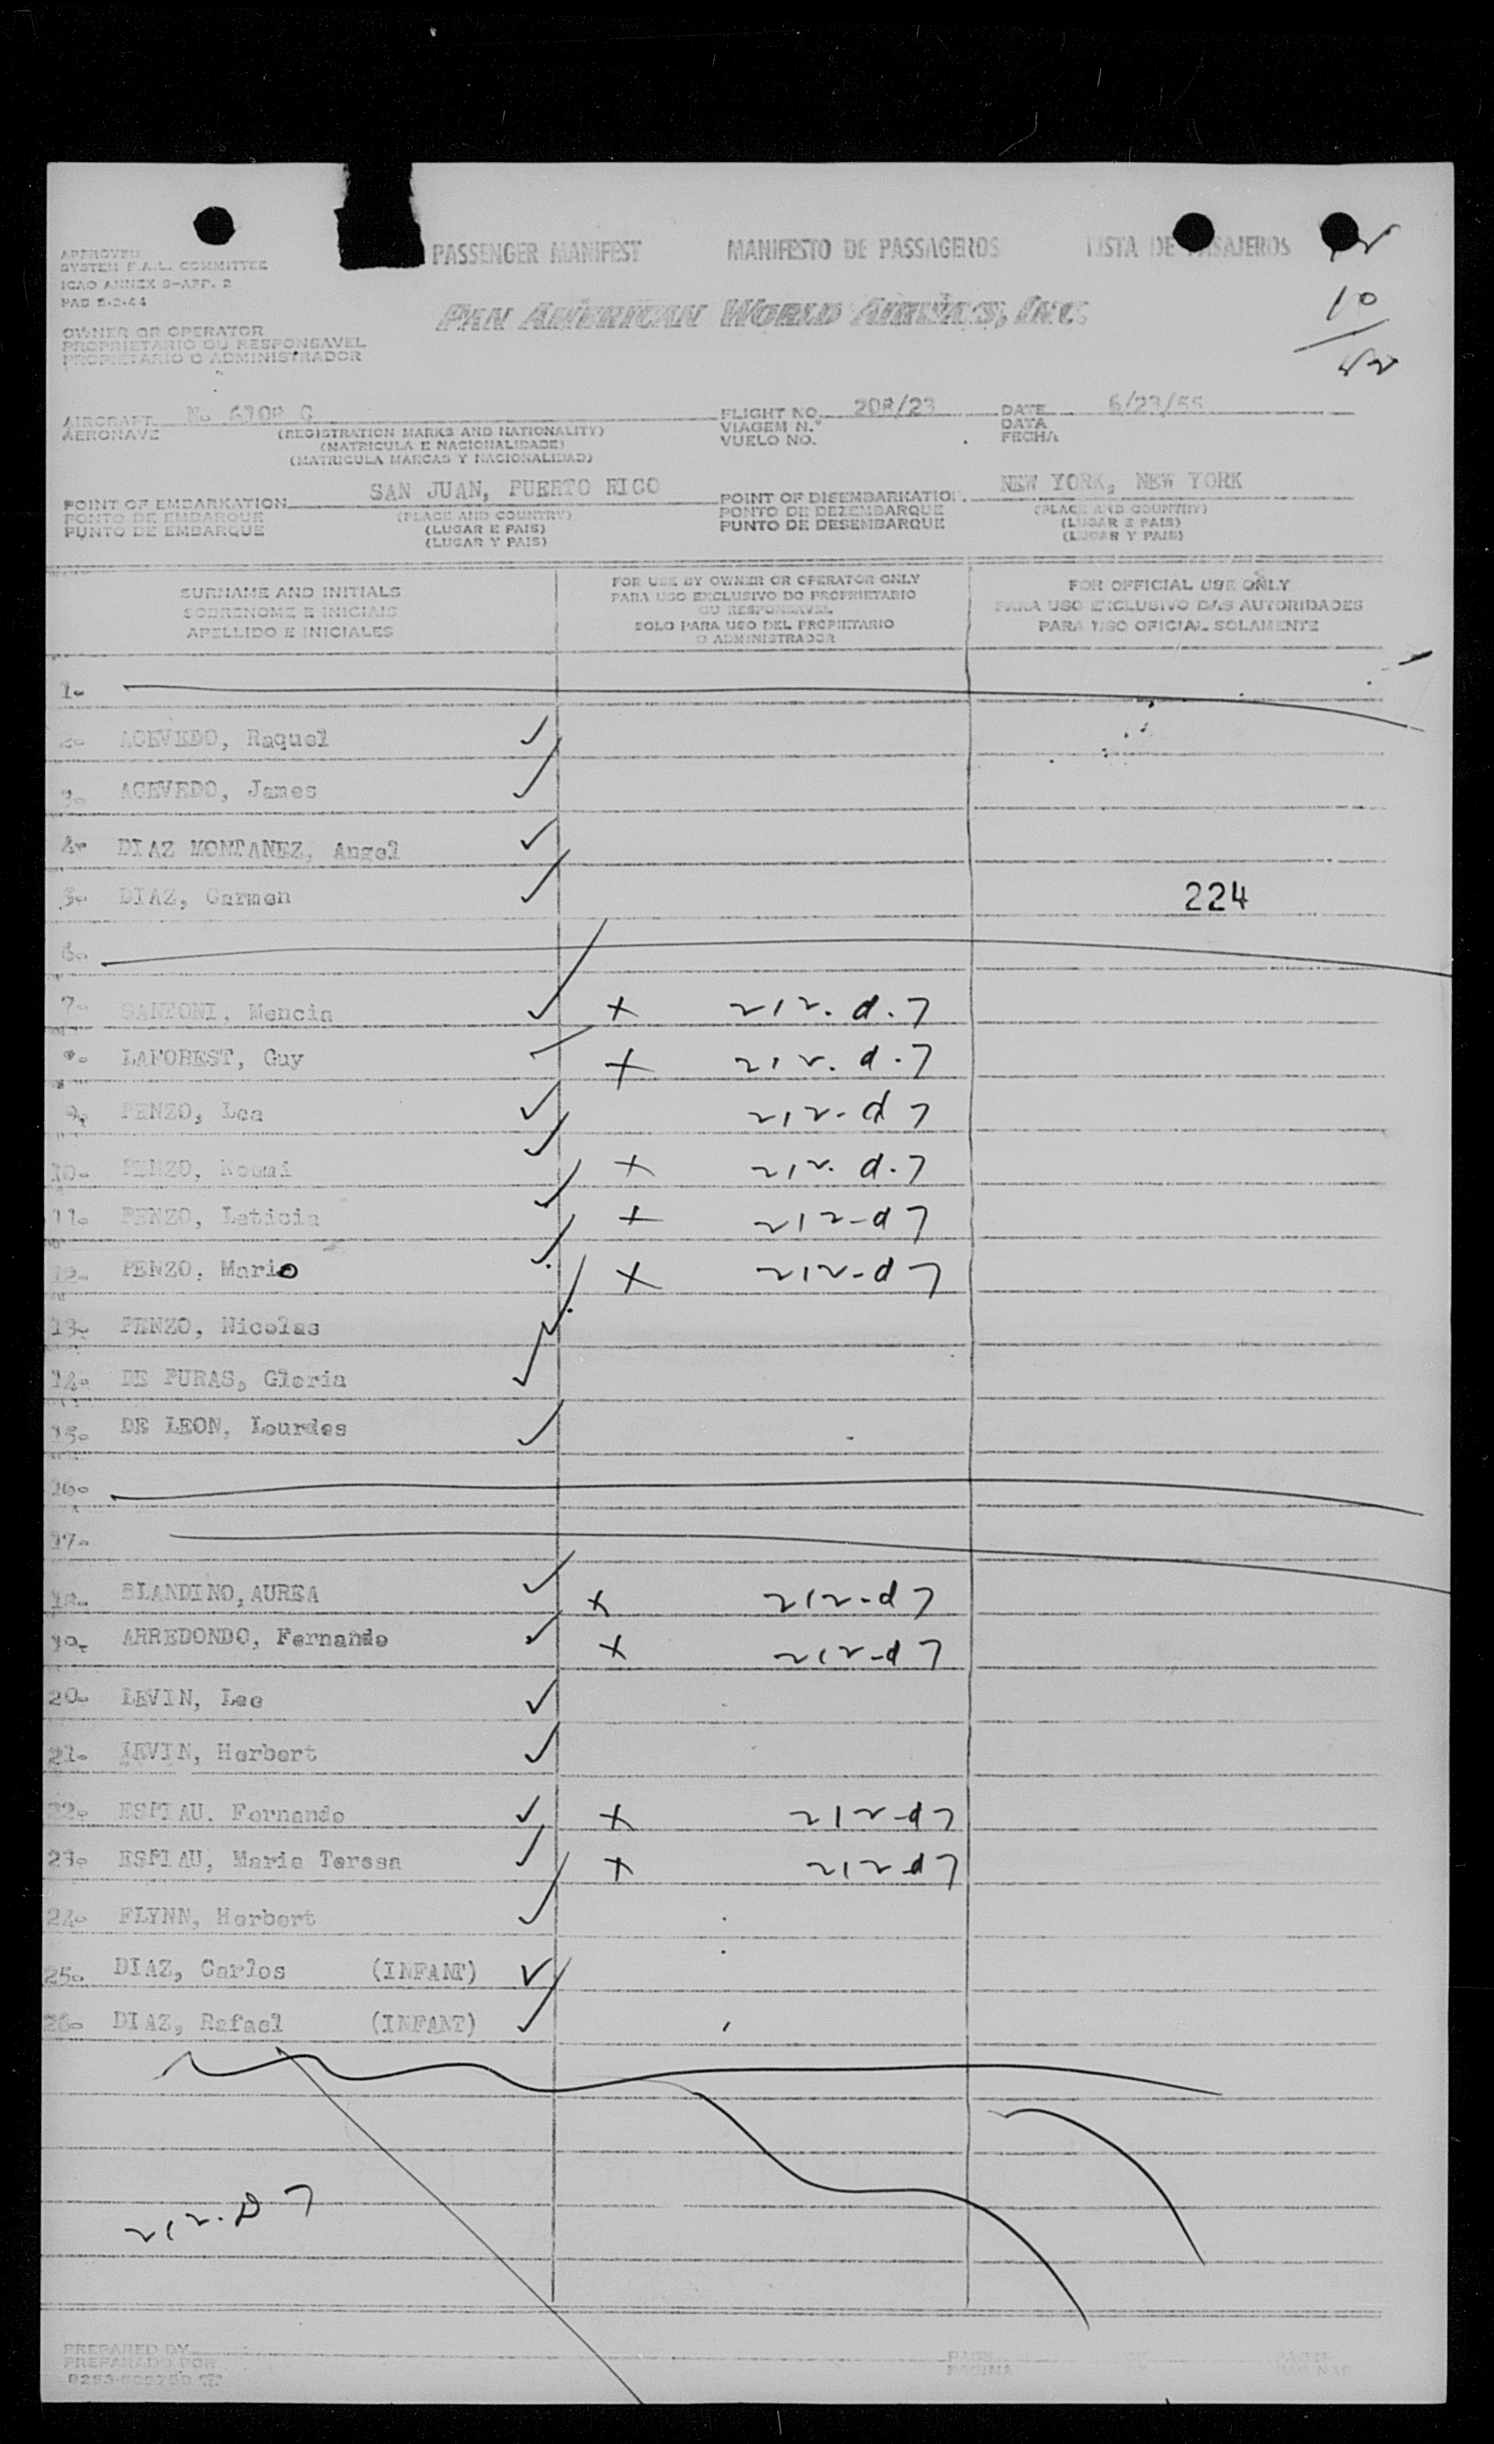 PASSENGER MANIFEST MANIFESTO DE PASSAGEROS LISTA DE PASAJEROS
APPROVED
SYSTEM F.A.L. COMMITTEE
ICAO ANNEX 9-APP. 2
PAN AMERICAN WORLD AIRWAYS, INC.
10
OWNER OR OPERATOR
PROPRIETARIO OU RESPONSAVEL
PROPIETARIO O ADMINISTRADOR
AIRCRAFT
AERONAVE
(REGISTRATION MARKS AND NATIONALITY)
(MATRICULA E NACIONALIDADE)
(MATRICULA MARCAS Y NACIONALIDAD)
FLIGHT NO. 208/23
VIAGEM N.º
VUELO NO.
DATE 6/23/55
DATA
FECHA
POINT OF EMBARKATION SAN JUAN, PUERTO RICO
PONTO DE EMBARQUE
PUNTO DE EMBARQUE
(PLACE AND COUNTRY)
(LUGAR E PAIS)
(LUGAR Y PAIS)
POINT OF DISEMBARKATION NEW YORK, NEW YORK
PONTO DE DEZEMBARQUE
PUNTO DE DESEMBARQUE
(PLACE AND COUNTRY)
(LUGAR E PAIS)
(LUGAR Y PAIS)
SURNAME AND INITIALS
SOBRENOME E INICIAIS
APELLIDO E INICIALES
FOR USE BY OWNER OR OPERATOR ONLY
PARA USO EXCLUSIVO DO PROPRIETARIO
OU RESPONSAVEL
SOLO PARA USO DEL PROPIETARIO
O ADMINISTRADOR
FOR OFFICIAL USE ONLY
PARA USO EXCLUSIVO DAS AUTORIDADES
PARA USO OFICIAL SOLAMENTE
1-
2- ACEVEDO, Raquel
3- ACEVEDO, James
4- DIAZ MONTANEZ, Angel
5- DIAZ, Carmen 224
6-
7- SANTONI, Mencia x 212.d.7
8- LAFOREST, Guy x 212.d.7
9- PENZO, Lea 212-d7
10- PENZO, Noumi x 212.d.7
11- PENZO, Leticia x 212-d7
12- PENZO, Mario x 212-d7
13- PENZO, Nicolas
14- DE PURAS, Gloria
15- DE LEON, Lourdes
16-
17-
18- BLANDINO, AUREA x 212-d7
19- ARREDONDO, Fernando x 212-d7
20- LEVIN, Lee
21- LEVIN, Herbert
22- ESPIAU. Fernando x 212-d7
23- ESPIAU, Maria Teresa x 212-d7
24- FLYNN, Herbert
25- DIAZ, Carlos (INFANT)
26- DIAZ, Rafael (INFANT)
212.D7
PREPARED BY
PREPARADO POR